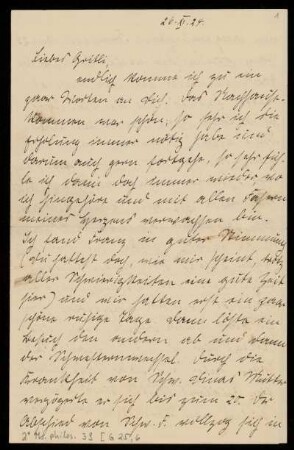 20. XI. 24.
Liebes Gritli,
endlich komme ich zu ein
paar Worten an dich. Das Nachhause-
kommen war schön. So sehr ich die
Erholung immer nötig habe und
darum auch gern fortgehe, so sehr füh-
le ich dann doch immer wieder wo
ich hingehöre und mit allen Fasern
meines Herzens verwachsen bin.
Ich fand Franz in guter Stimmung
(du hattest doch, wie mir scheint, trotz
aller Schwierigkeiten eine gute Zeit
hier) und wir hatten erst ein paar
schöne ruhige Tage. Dann löste ein
Besuch den andern ab und wann
der Schwesternwechsel. Durch die
Krankheit von Schw. Mutter
verzögerte er sich bis zum 20. Der
Abschied von Schw. vollzog sich in